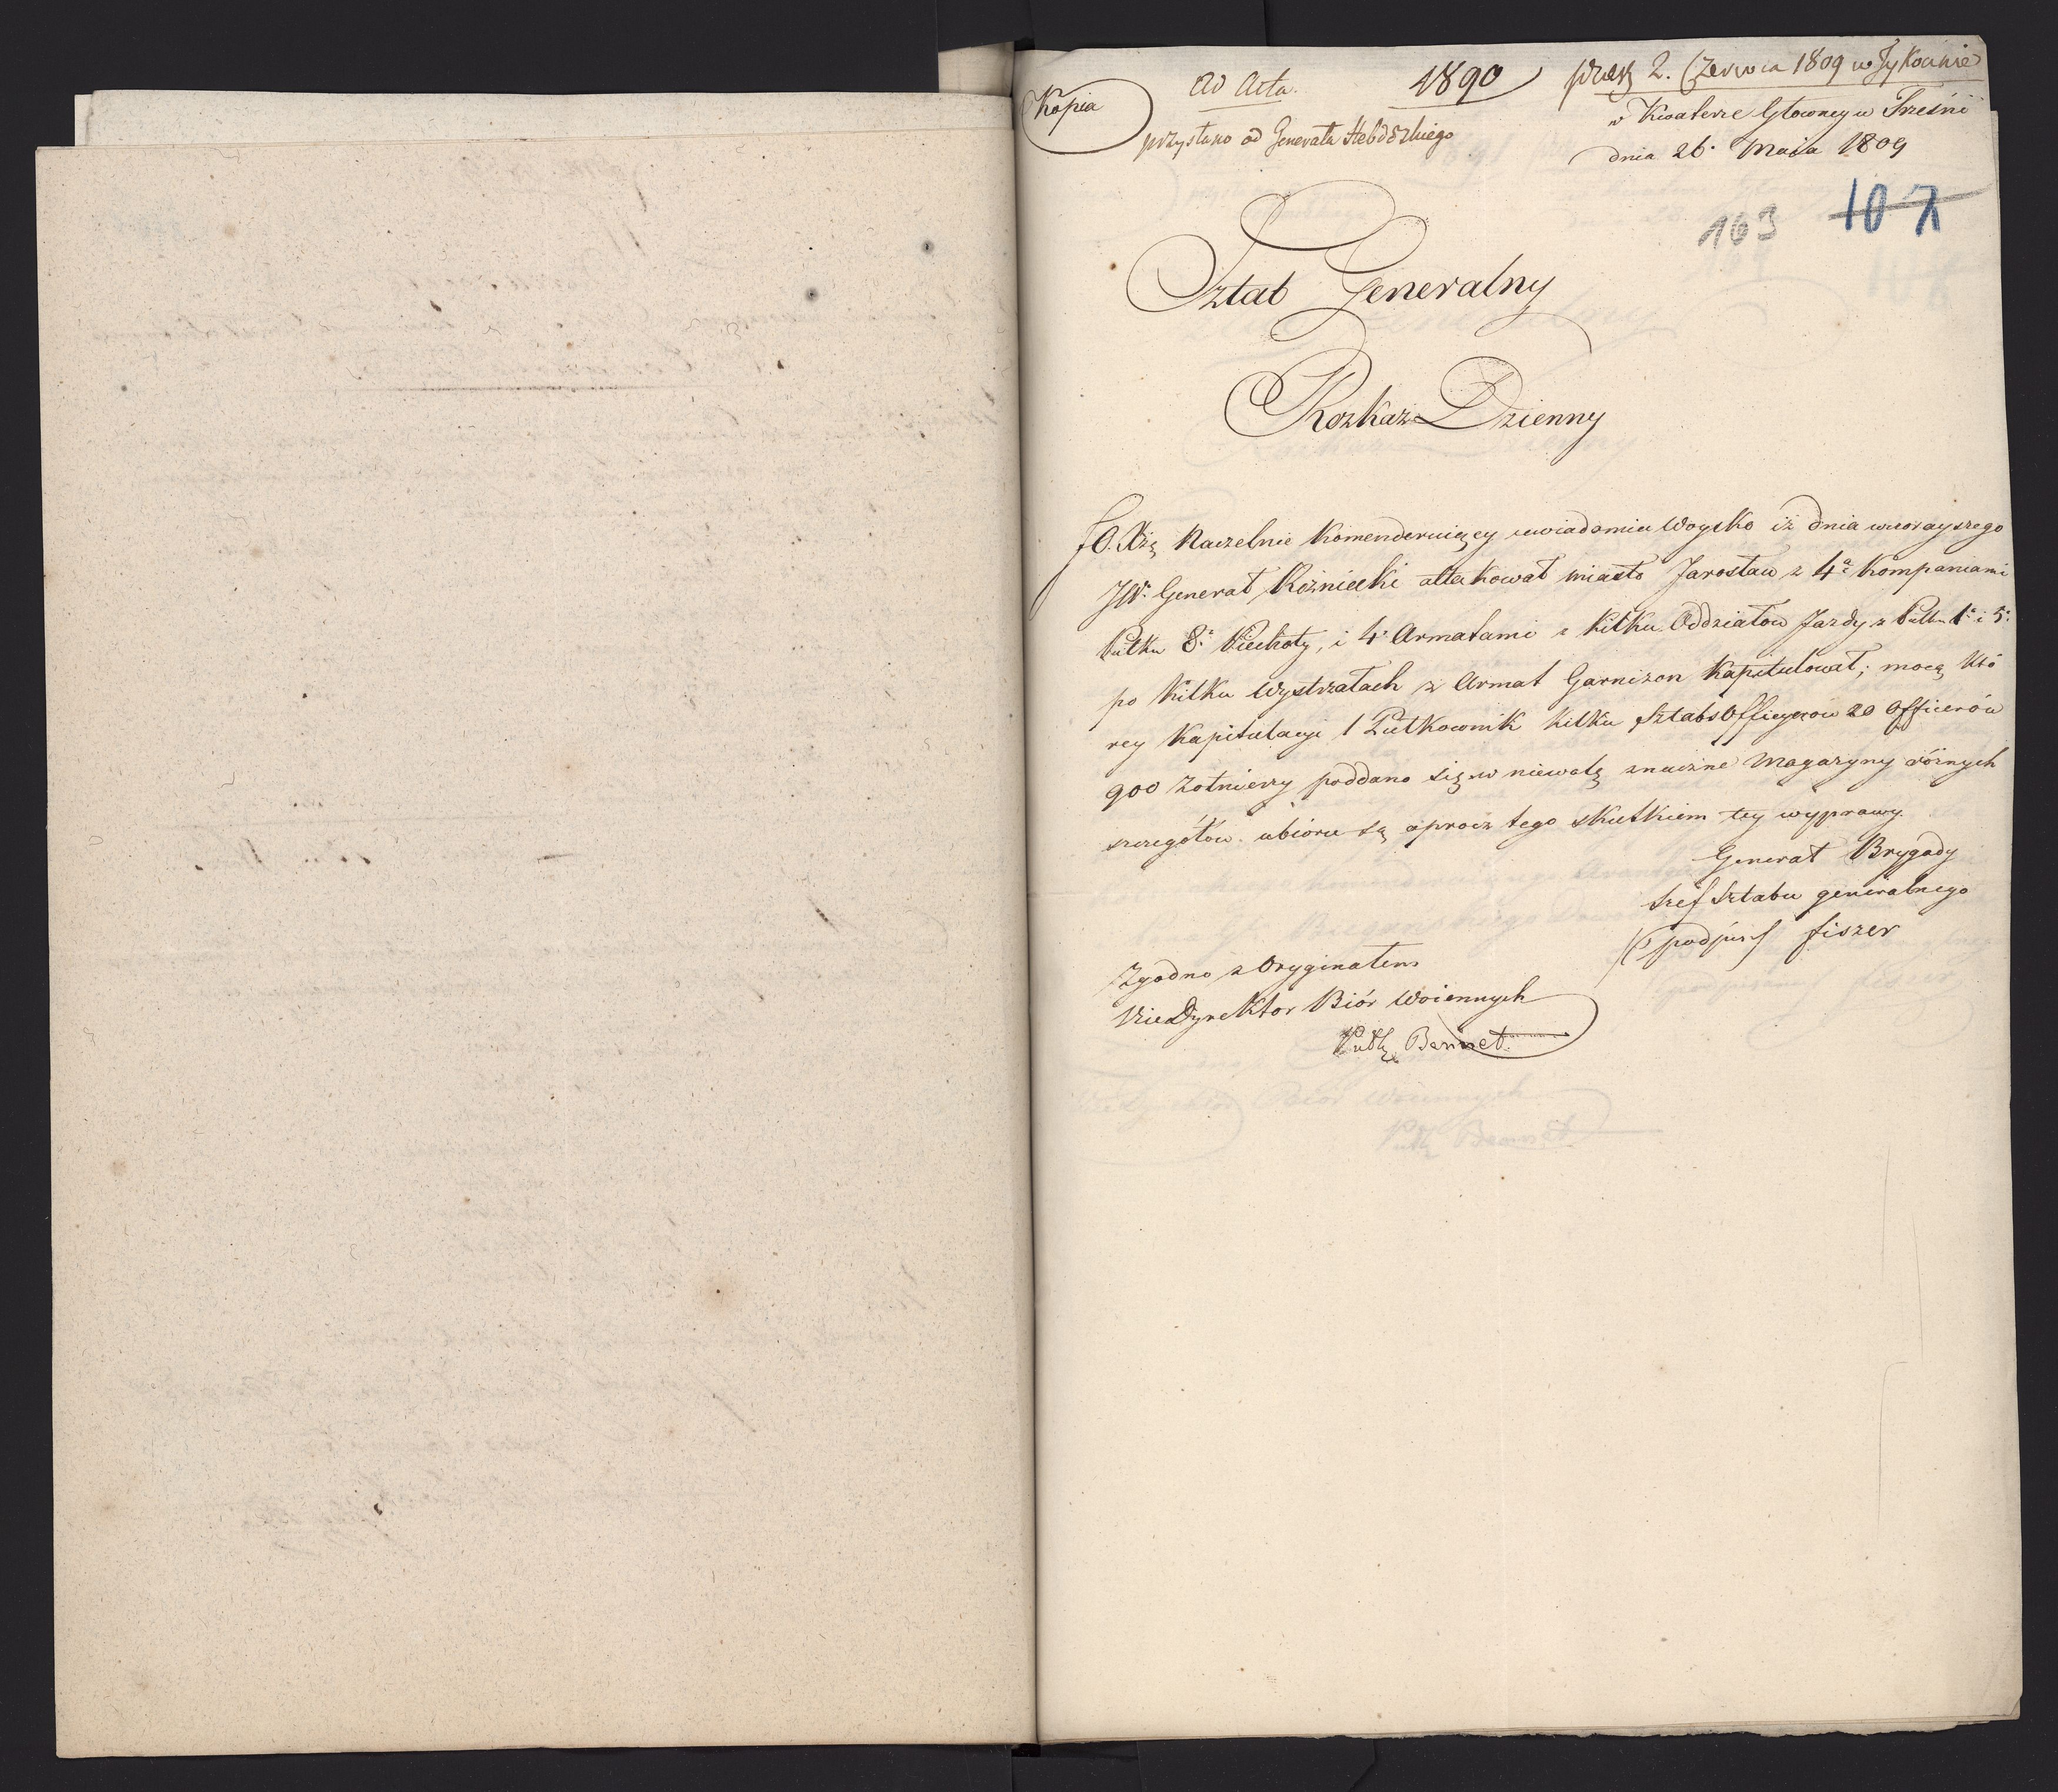 Kopia
Ad Acta.
1890
przysłano od Generała Hebdowskiego
2. Czerwca 1809 w Tykocinie
w Kwaterze Głowney w Trześni
dnia 26. Maia 1809
163 107
Sztab Generalny
Rozkaz Dzienny
J.O. Xżę Naczelnie Komenderuiący uwiadomia Woysko iż dnia wczorayszego
JW. Generał Rożniecki attakował miasto Jarosław z 4a Kompaniami
Pułku 8o Piechoty, i 4 Armatami z kilku Oddziałow Jazdy z Pułku 1o i 5o
po kilku Wystrzałach z Armat Garnizon Kapitulował; mocą któ
rey Kapitulacyi 1 Pułkownik kilku Sztabs Officyerow 20 Officerów
900 Żołnierzy poddano się w niewolę znaczne Magazyny różnych
szczegółow ubioru są oprocz tego skutkiem tey wyprawy.
Generał Brygady
Szef Sztabu generalnego
podpis Fiszer
Zgodno z Oryginałem
Vice Dyrektor Biór Woiennych
Pułk. Bennet